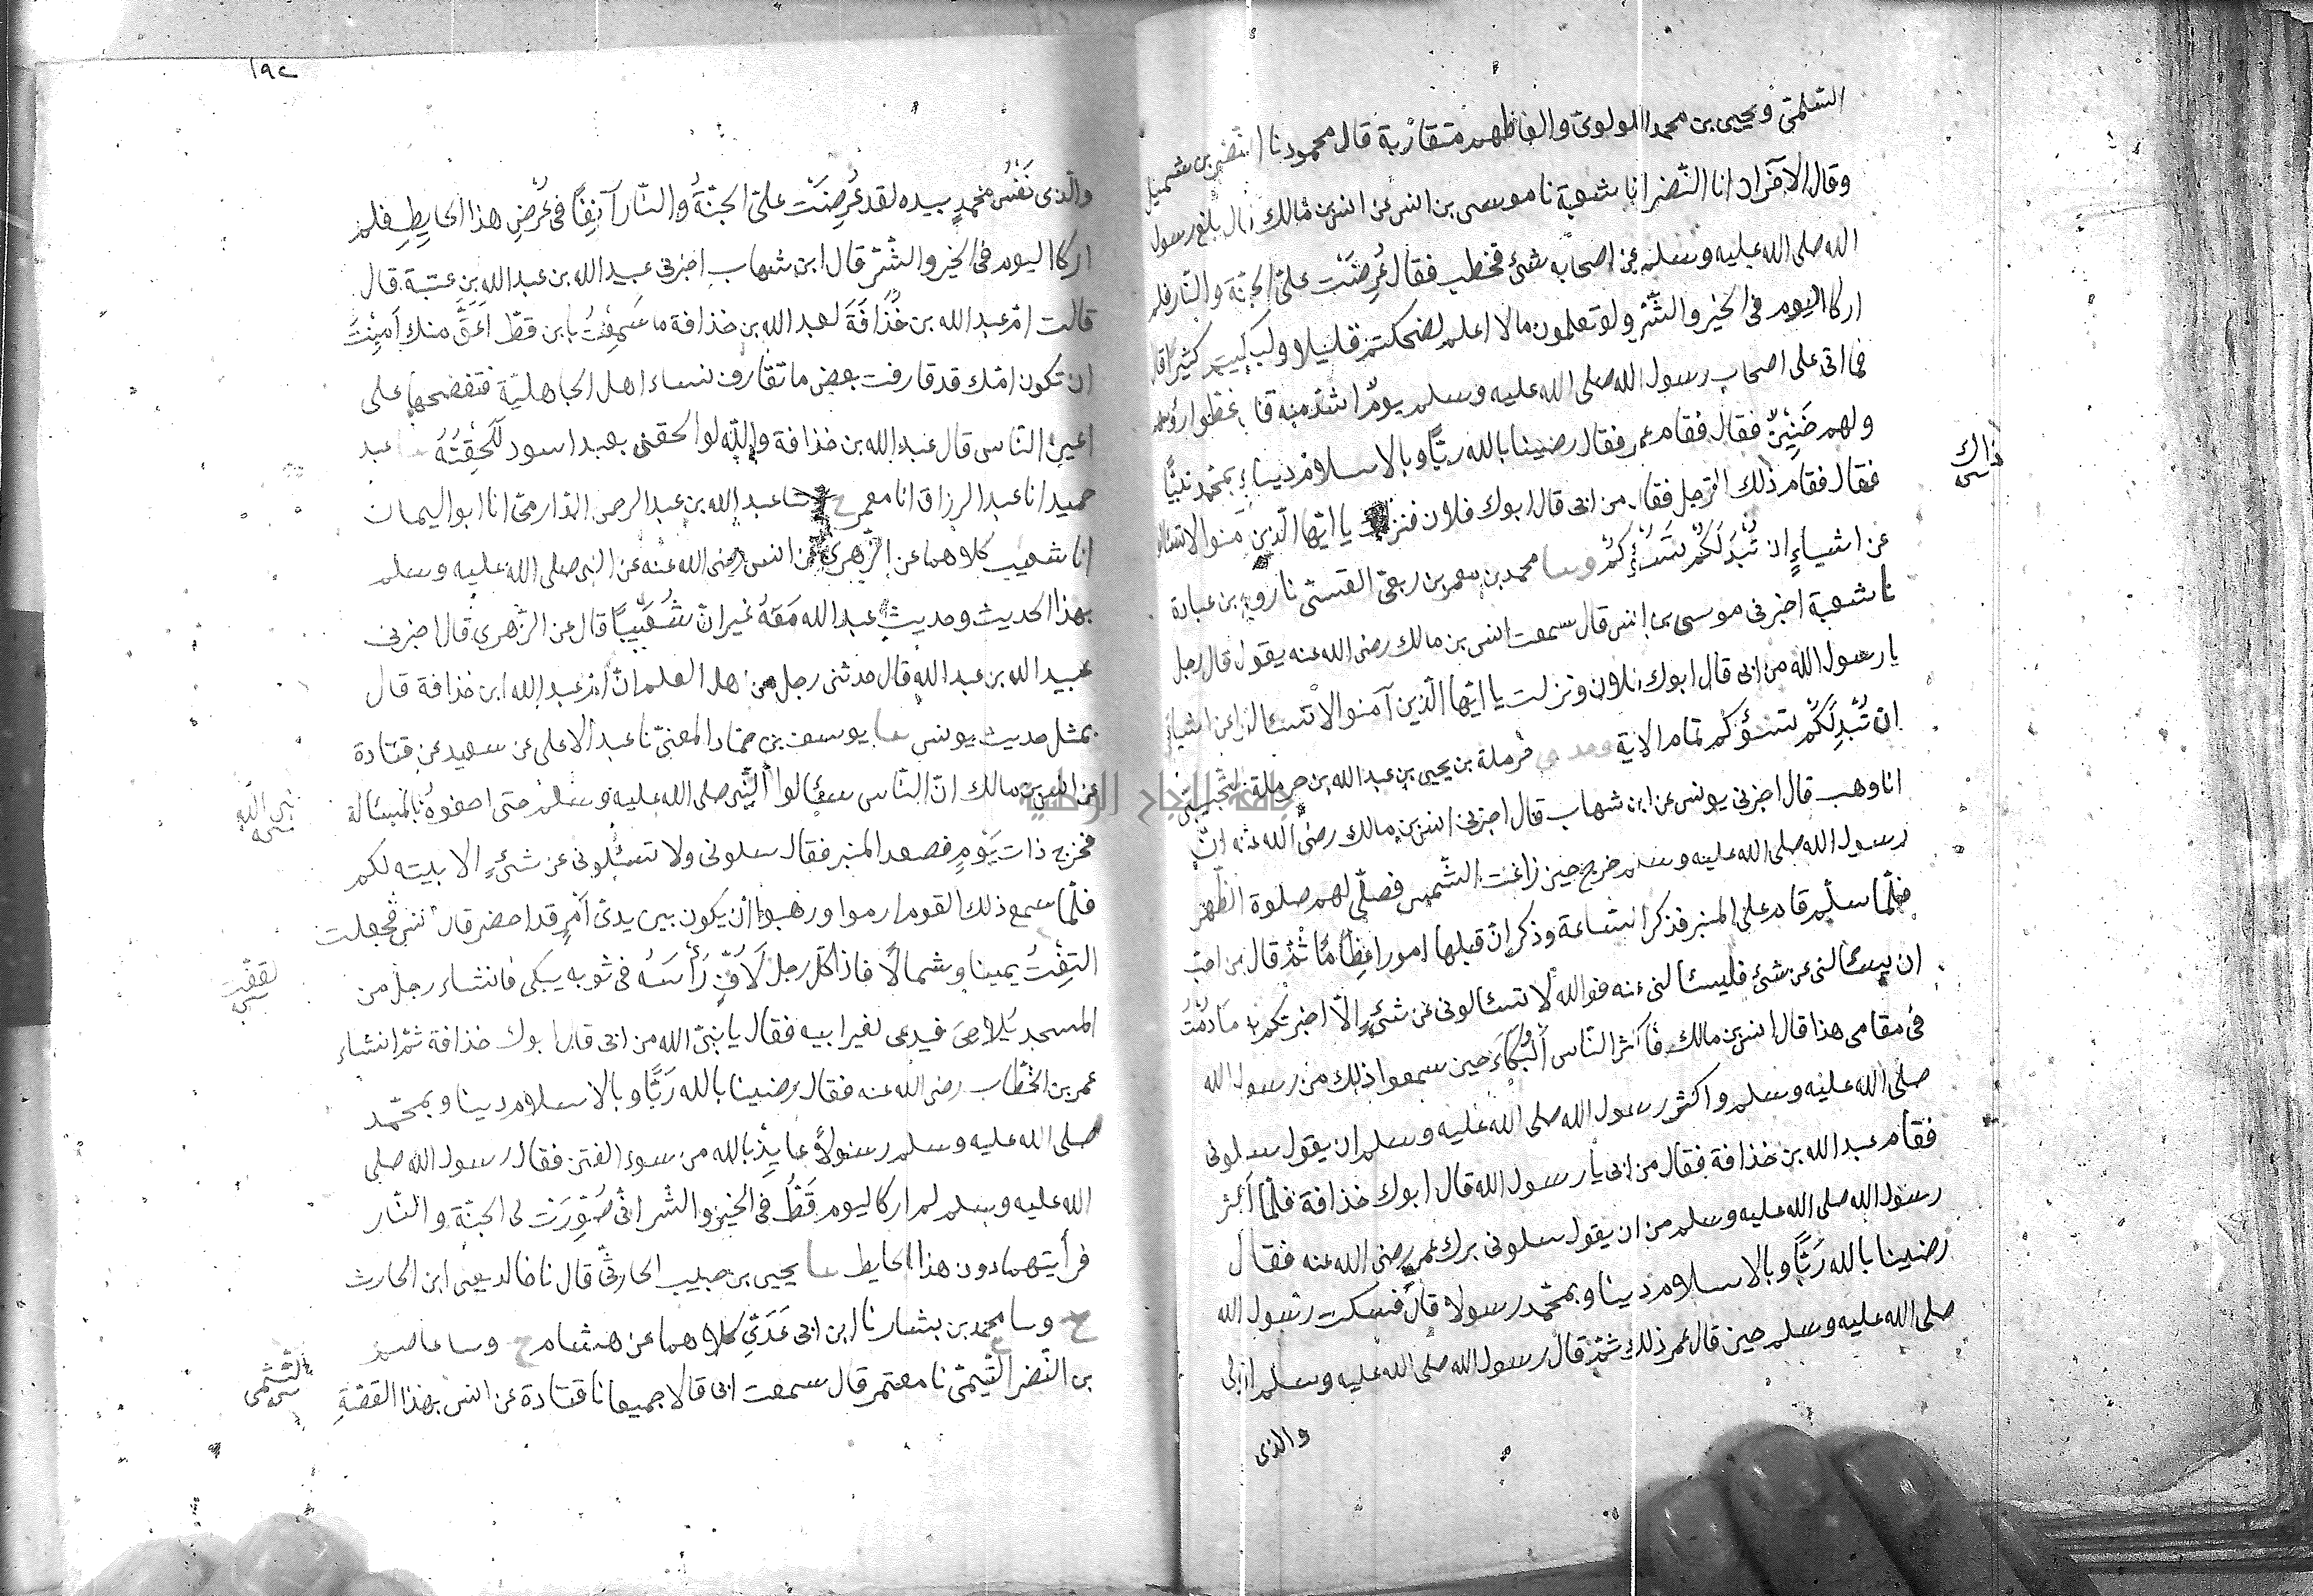 السلمى ويحيى بن محمد اللولوى والفاظهم متقاربة قال محمود نا النضر بن شميل
وقال الآخران انا النضر انا شعبة نا موسى بن انس عن انس بن مالك قال بلغ رسول
الله صلى الله عليه وسلم عن اصحابه شئ فخطب فقال عُرِضَتْ علىّ الجنة والنار فلم
اركاليوم فى الخير والشّرّ ولو تعلمون ما اعلم لضحكتم قليلا ولبكيتم كثيرا قال
فما اتى على اصحاب رسول الله صلى الله عليه وسلم يومٌ اشدّ منه قال غطوا رؤسهم
ولهم خَنِيْنٌ فقال فقام عمر فقال رضينا بالله ربًّا وبالاسلام دينا وبمحمد نبيًّا
فقال فقام ذلك الرّجل فقال من ابى قال ابوك فلان فنزلت يا ايّها الّذين آمنوا لا تسئالوا
عن اشياءٍ ان تُبْدَلَكُمْ تَسُؤْكُمْ وسا محمد بن معمر بن ربعى القيسى نا روح بن عبادة
نا شعبة اخبرنى موسى بن انس قال سمعت انس بن مالك رضى الله عنه يقول قال رجل
يا رسول الله من ابى قال ابوك فلان ونزلت يا ايّها الّذين آمنوا لا تسئالوا عن اشياء
ان تُبْدَلَكُمْ تسؤكم تمام الاية وحدثنى حرملة بن يحيى بن عبد الله بن حرملة التّجيبىّ
انا وهب قال اخبرنى يونس عن ابن شهاب قال اخبرنى انس بن مالك رضى الله عنه انّ
رسول الله صلى الله عليه وسلم خرج حين زاغت الشّمس فصلّى لهم صلوة الظّهر
فلمّا سلّم قام على المنبر فذكر السّاعة وذكر انّ قبلها امورا عِظَامًا ثُمّ قال من احبّ
ان يسئالنى عن شئ فليسئالنى عنه فوالله لا تسئالونى عن شئ الّا اخبرتكم به مَا دُمْتُ
فى مقامى هذا قال انس بن مالك فأكثر النّاس الْبُكَاءَ حين سمعوا ذلك من رسول الله
صلى الله عليه وسلم واكثر رسول الله صلى الله عليه وسلم ان يقول سلونى
فقام عبد الله بن حذافة فقال من ابى يا رسول الله قال ابوك حذافة فلمّا أكثر
رسول الله صلى الله عليه وسلم من ان يقول سلونى برك عمر رضى الله عنه فقال
رضينا بالله رَبًّا وبالاسلام دينا وبمحمّد رسولا قال فسكت رسول الله
صلى الله عليه وسلم حين قال عمر ذلك ثمّ قال رسول الله صلى الله عليه وسلم اولى
والذى
ذاك
١٩٢
والّذى نَفْسُ محمدٍ بيده لقد عُرِضَتْ علىّ الجنّةُ والنّار آنِفًا فى عُرْضِ هذا الحايِطِ فلم
اركاليوم فى الخير والشّرّ قال ابن شهاب اخبرنى عبيد الله بن عبد الله بن عتبة قال
قالت امّ عبد الله بن حُذَافَةَ لعبد الله بن حذافة ما سَمِعْتُ بابن قطّ اَعَقَّ منك اَمِنْتَ
ان تكون امّك قد قارفت بعض ما تقارف نساء اهل الجاهليّة فتفضحها على
اعين النّاس قال عبد الله بن حذافة واللّه لو الحقنى بعبد اسود لَلَحِقْتُهُ عبد
حميد انا عبد الرزاق انا معمر ح وسا عبد الله بن عبد الرحمن الدّارمىّ انا ابو اليمان
انا شعيب كلاهما عن الزّهرى عن انس رضى الله عنه عن النبى صلى الله عليه وسلم
بهذا الحديث وحديث عبد الله مَعَهُ غير انّ شُعَيْبًا قال عن الزّهرى قال اخبرنى
عبيد الله بن عبد الله قال حدثنى رجل من اهل العلم انّ امّ عبد الله ابن حذافة قال
بمثل حديث يونس سا يوسف بن حمّاد المعنىّ نا عبد الاعلى عن سعيد عن قتادة
عن انس بن مالك انّ النّاس سئالوا النّبىّ صلى الله عليه وسلم حتى احفوهُ بالمسئالة
فخرج ذات يَوْمٍ فصعد المنبر فقال سلونى ولا تسئلونى عن شئٍ الا بينته لكم
فلمّا سمع ذلك القوم ارموا ورهبوا ان يكون بين يدىْ اَمْرٍ قد احضر قال انس فجعلت
التفِتُ يمينا وشمالًا فاذا كلّ رجل لَافٌّ رَأْسَهُ فى ثوبه يبكى فانشاء رجل من
المسجد يُلَاحَى فيدعى لغير ابيه فقال يا نبىّ الله من ابى قال ابوك حذافة ثمّ انشاء
عمر بن الخطّاب رضى الله عنه فقال رضينا بالله رَبًّا وبالاسلام دينا وبمحمّد
صلى الله عليه وسلم رسولًا عايِذٌ بالله من سوء الفتن فقال رسول الله صلى
الله عليه وسلم لم اركاليوم قَطُّ فى الخير والشّر انّى صُوِّرَتْ لى الجنّة والنّار
فرأيتهما دون هذا الحايط سا يحيى بن حبيب الحارثىّ قال نا خالد يعنى ابن الحارث
ح وسا محمد بن بشار نا ابن ابى عَدِىّ كلاهما عن هشام ح وسا عاصم
بن النّضر التّيمىّ نا معتمر قال سمعت ابى قالا جميعا نا قتادة عن انس بهذا القصّةِ
نبى الله
جامعة النجاح الوطنية